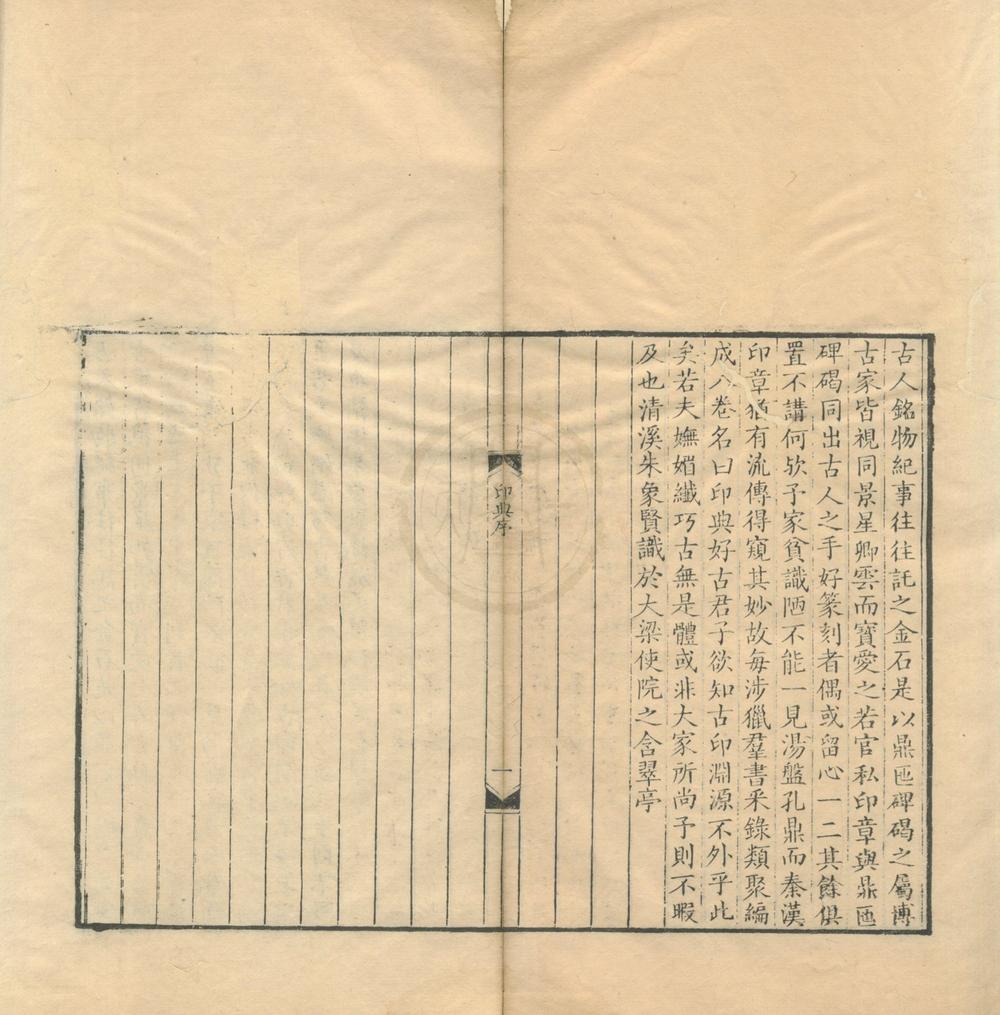 古人銘物紀事往往託之金石是以鼎匜碑碣之屬博
古家皆視同景星卿雲而寶愛之若官私印章與鼎匜
碑碣同出古人之手好篆刻者偶或留心一二其餘俱
置不講何歟予家貧識陋不能一見湯盤孔鼎而秦漢
印章猶有流傳得窺其妙故每涉獵羣書釆錄類聚編
成八卷名曰印典好古君子欲知古印淵源不外乎此
矣若夫嫵媚纖巧古無是體或非大家所尚予則不暇
及也清溪朱象賢識於大梁使院之含翠亭
印典序
一